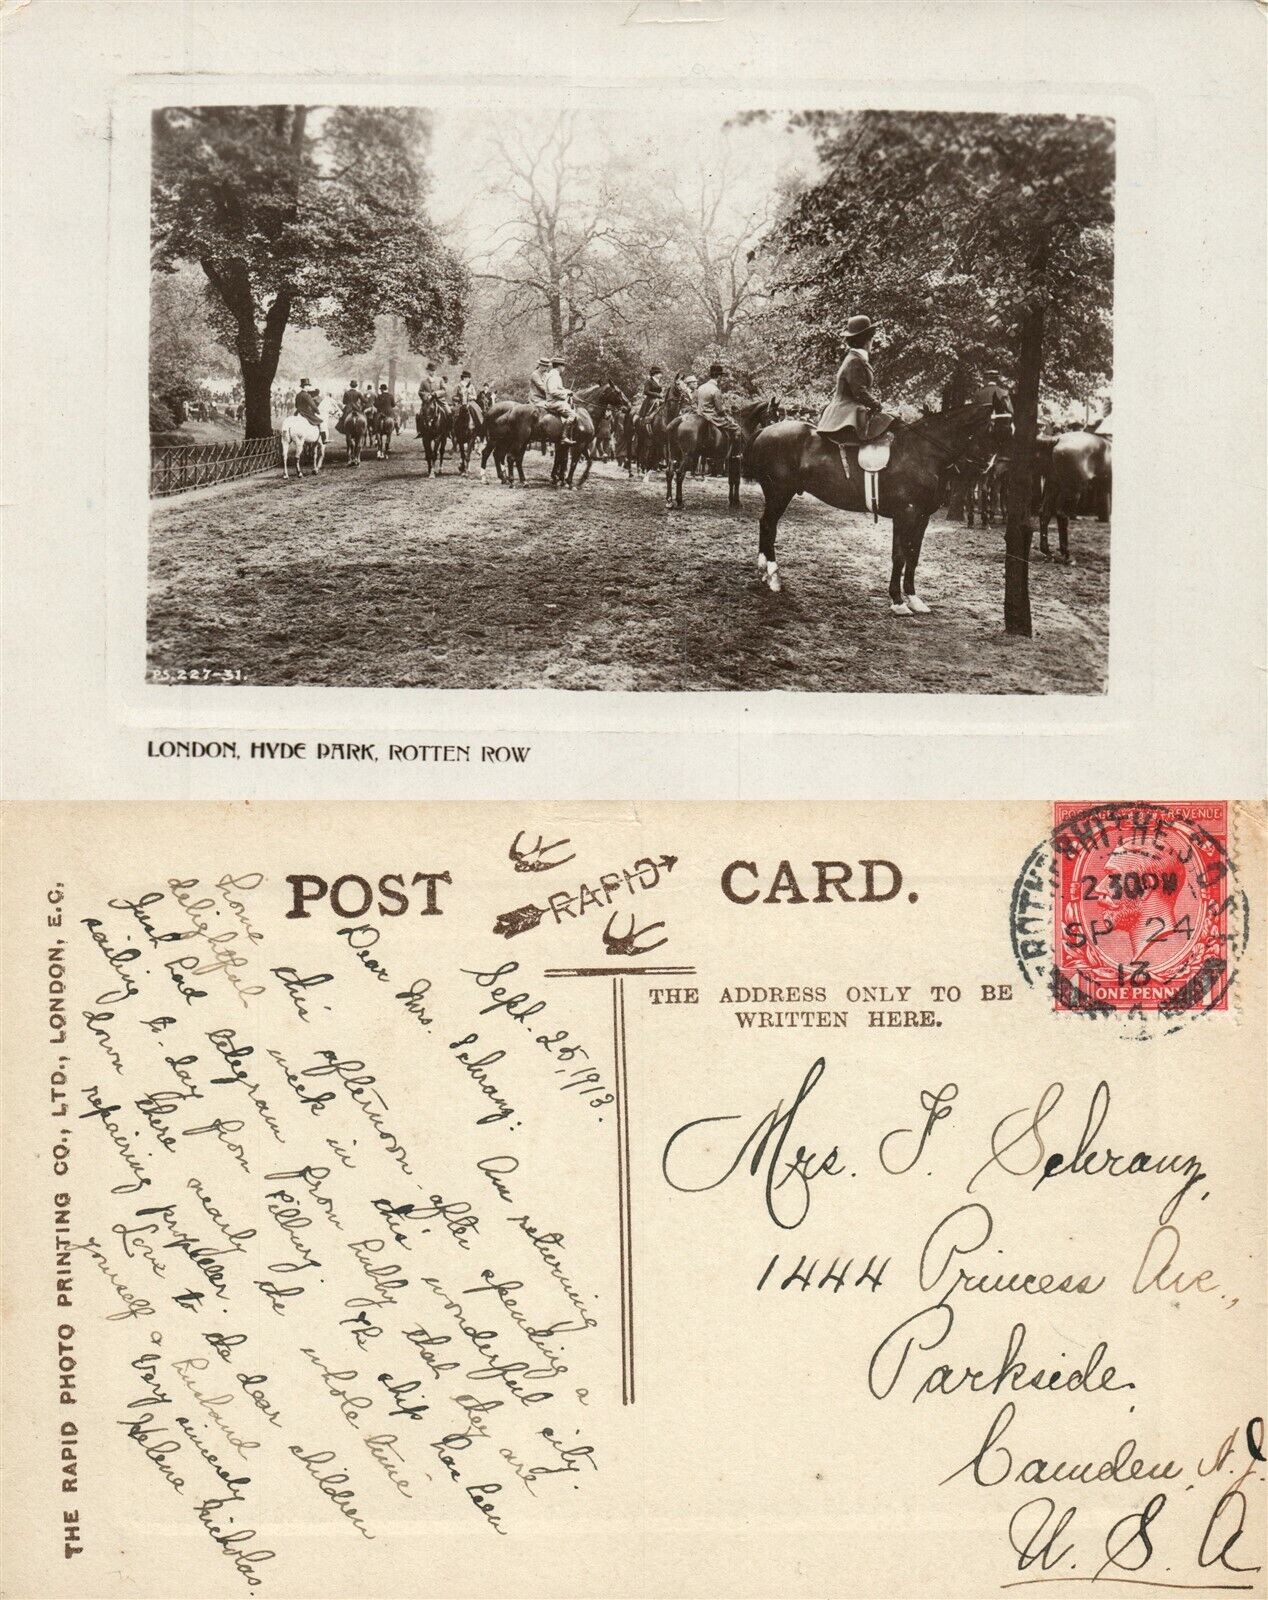 P.S. 227-31.
LONDON, HYDE PARK, ROTTEN ROW
POST CARD.
RAPID
THE ADDRESS ONLY TO BE
WRITTEN HERE.
POSTAGE REVENUE
ONE PENNY
ROTHERHITHE. S.O. S.E.
2.30PM
SP 24
13
THE RAPID PHOTO PRINTING CO., LTD., LONDON, E.C.
Sept. 25, 1913.
Dear Mrs. Schranz: Am returning
home this afternoon - after spending a
delightful week in this wonderful city.
Just had telegram from hubby that they are
sailing to-day from Tilbury. The ship has been
down there nearly the whole time
repairing propeller.
Love to the dear children
yourself & husband
Very sincerely
Helene Nicholas.
Mrs. F. Schranz,
1444 Princess Ave.,
Parkside.
Camden, N.J.
U. S. A